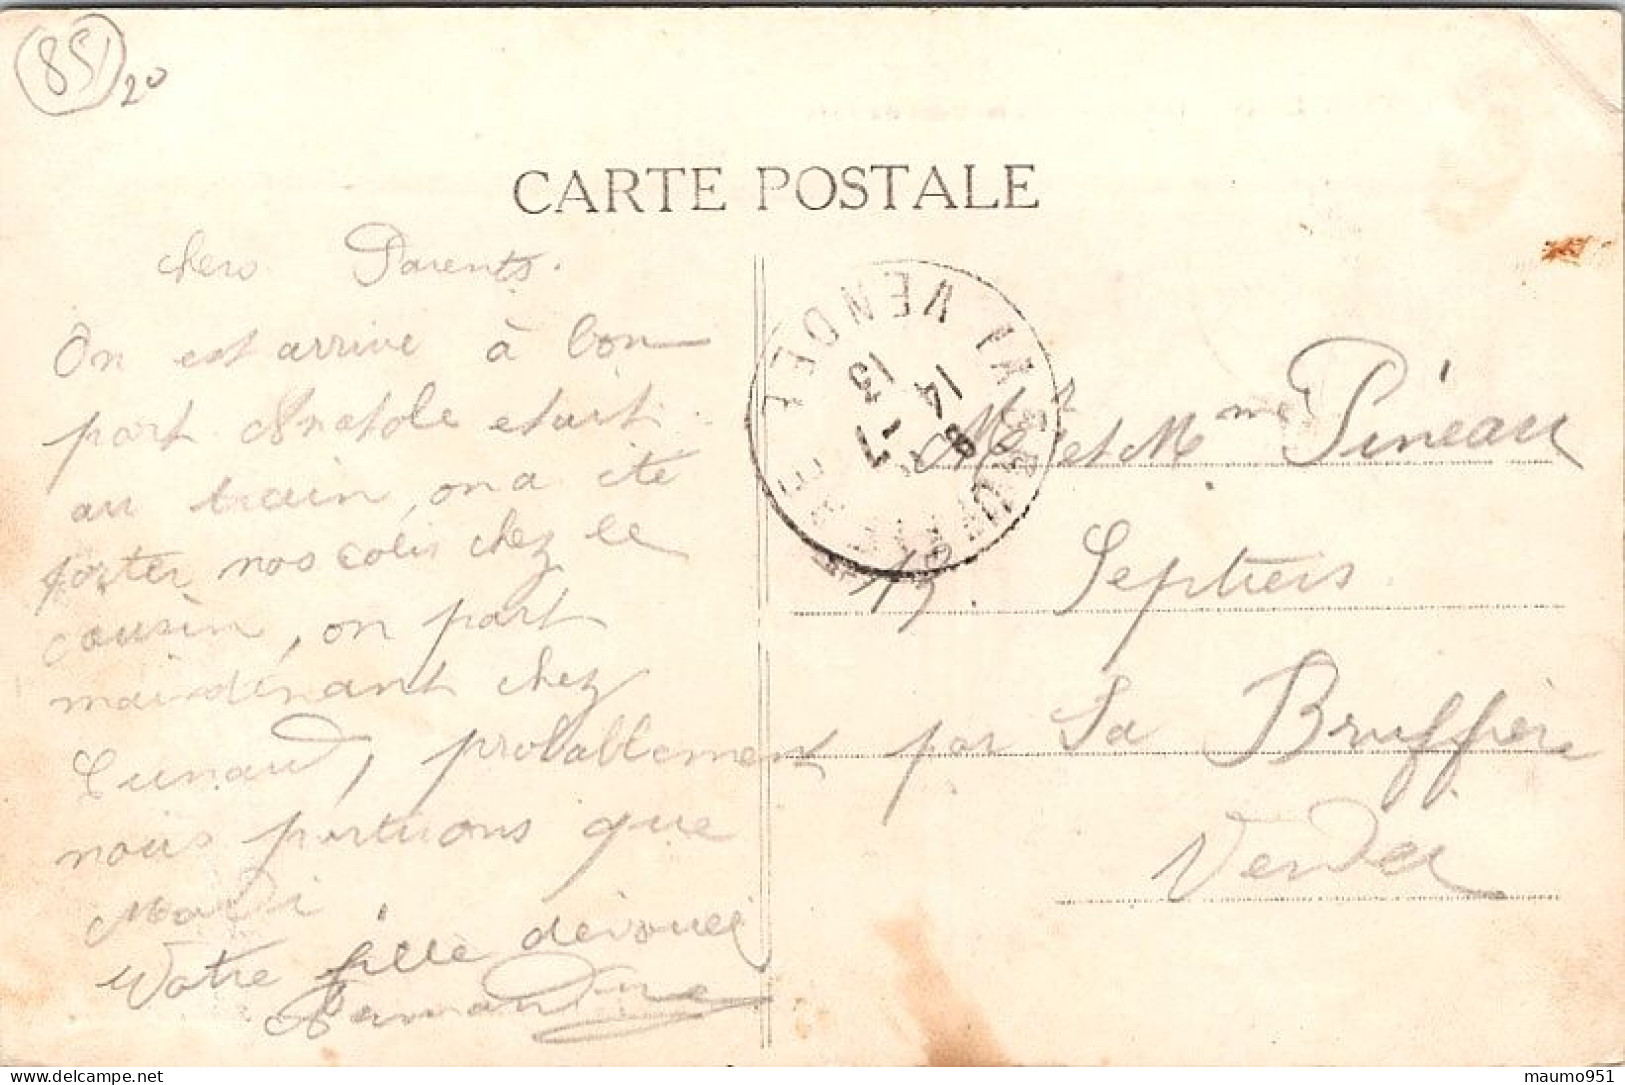 85
20
CARTE POSTALE
chers Parents.
On est arrivé à bon
port Anatole etait
au train, on a été
porter nos colis chez le
cousin, on part
maintenant chez
Lunaud, probablement
nous partirons que
Mardi
Votre fille dévouée
Armandine
VENDEE
13
14
7
Mr et Mme Pineau
13. Septiers
par La Bruffière
Vendée
maumo951